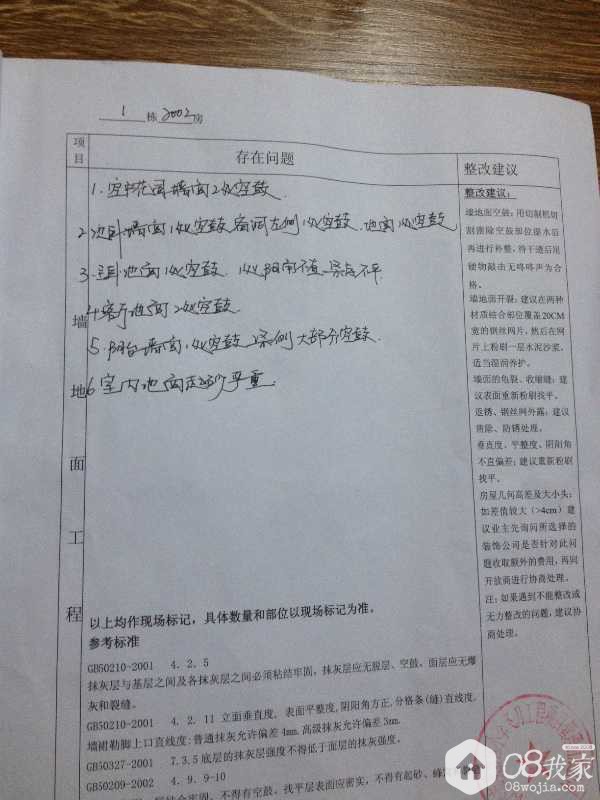 1 栋 2002 房
项目
存在问题
整改建议
1. 空中花园墙面2处空鼓
2 次卧墙面1处空鼓 窗洞左侧1处空鼓. 地面1处空鼓
3. 主卧地面1处空鼓. 1处阴角不直
4 客厅地面2处空鼓
5. 阳台墙面1处空鼓 大部分空鼓
6 室内地面起砂严重
墙
地
面
工
程
以上均作现场标记，具体数量和部位以现场标记为准。
参考标准
GB50210-2001 4．2．5
抹灰层与基层之间及各抹灰层之间必须粘结牢固，抹灰层应无脱层、空鼓，面层应无爆
灰和裂缝。
GB50210-2001 4．2．11 立面垂直度，表面平整度,阴阳角方正,分格条(缝)直线度,
墙裙勒脚上口直线度:普通抹灰允许偏差4mm.高级抹灰允许偏差3mm.
GB50327-2001 7.3.5底层的抹灰层强度不得低于面层的抹灰强度。
GB50209-2002 4．9．9-10
不得有空鼓。找平层表面应密实，不得有起砂、
整改建议：
墙地面空鼓：用切割机切
割凿除空鼓部位湿水后
再进行补整，待干透后用
硬物敲击无咚咚声为合
格。
墙地面开裂：建议在两种
材质结合部位覆盖20CM
宽的钢丝网片，然后在网
片上粉刷一层水泥沙浆，
适当湿润养护。
墙面的龟裂、收缩缝：建
议表面重新粉刷找平。
返锈、钢丝网外露：建议
凿除、防锈处理。
垂直度、平整度、阴阳角
不直偏差：建议重新粉刷
找平。
房屋几何高差及大小头：
如差值较大（>4cm）建
议业主先询问所选择的
装饰公司是否针对此问
题收取额外的费用，再同
开放商进行协商处理。
注：如果遇到不能整改或
无力整改的问题，建议协
商处理。
08我家
08wojia.com